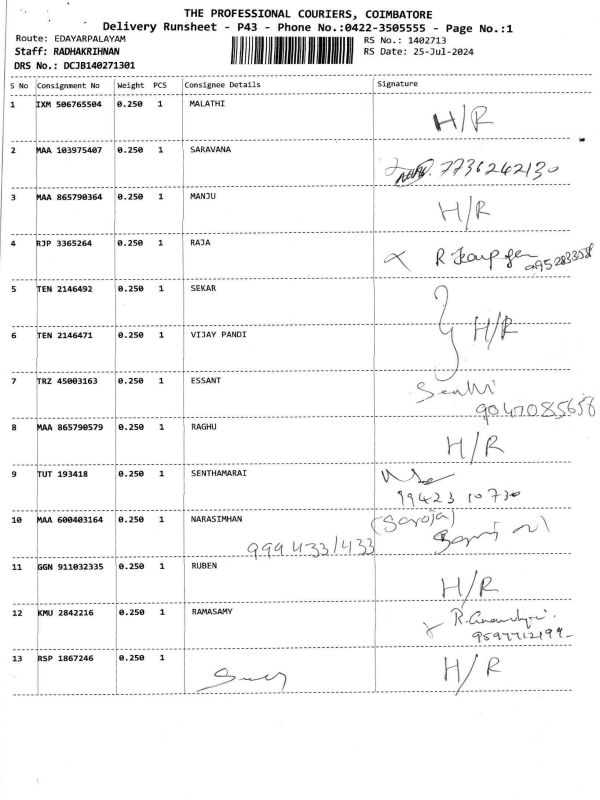 THE PROFESSIONAL COURIERS, COIMBATORE
Delivery Runsheet - P43 - Phone No.:0422-3505555 - Page No.:1
Route: EDAYARPALAYAM
RS No.: 1402713
Staff: RADHAKRIHNAN
RS Date: 25-Jul-2024
DRS No.: DCJB140271301
S No Consignment No Weight PCS Consignee Details Signature
1 IXM 506765504 0.250 1 MALATHI
H/R
2 MAA 103975407 0.250 1 SARAVANA
7736242130
3 MAA 865790364 0.250 1 MANJU
H/R
4 RJP 3365264 0.250 1 RAJA
R
5 TEN 2146492 0.250 1 SEKAR
6 TEN 2146471 0.250 1 VIJAY PANDI
H/R
7 TRZ 45003163 0.250 1 ESSANT
9047085656
8 MAA 865790579 0.250 1 RAGHU
H/R
9 TUT 193418 0.250 1 SENTHAMARAI
99423 10730
10 MAA 600403164 0.250 1 NARASIMHAN
(Saroja)
999 433/433
11 GGN 911032335 0.250 1 RUBEN
H/R
12 KMU 2842216 0.250 1 RAMASAMY
13 RSP 1867246 0.250 1
H/R